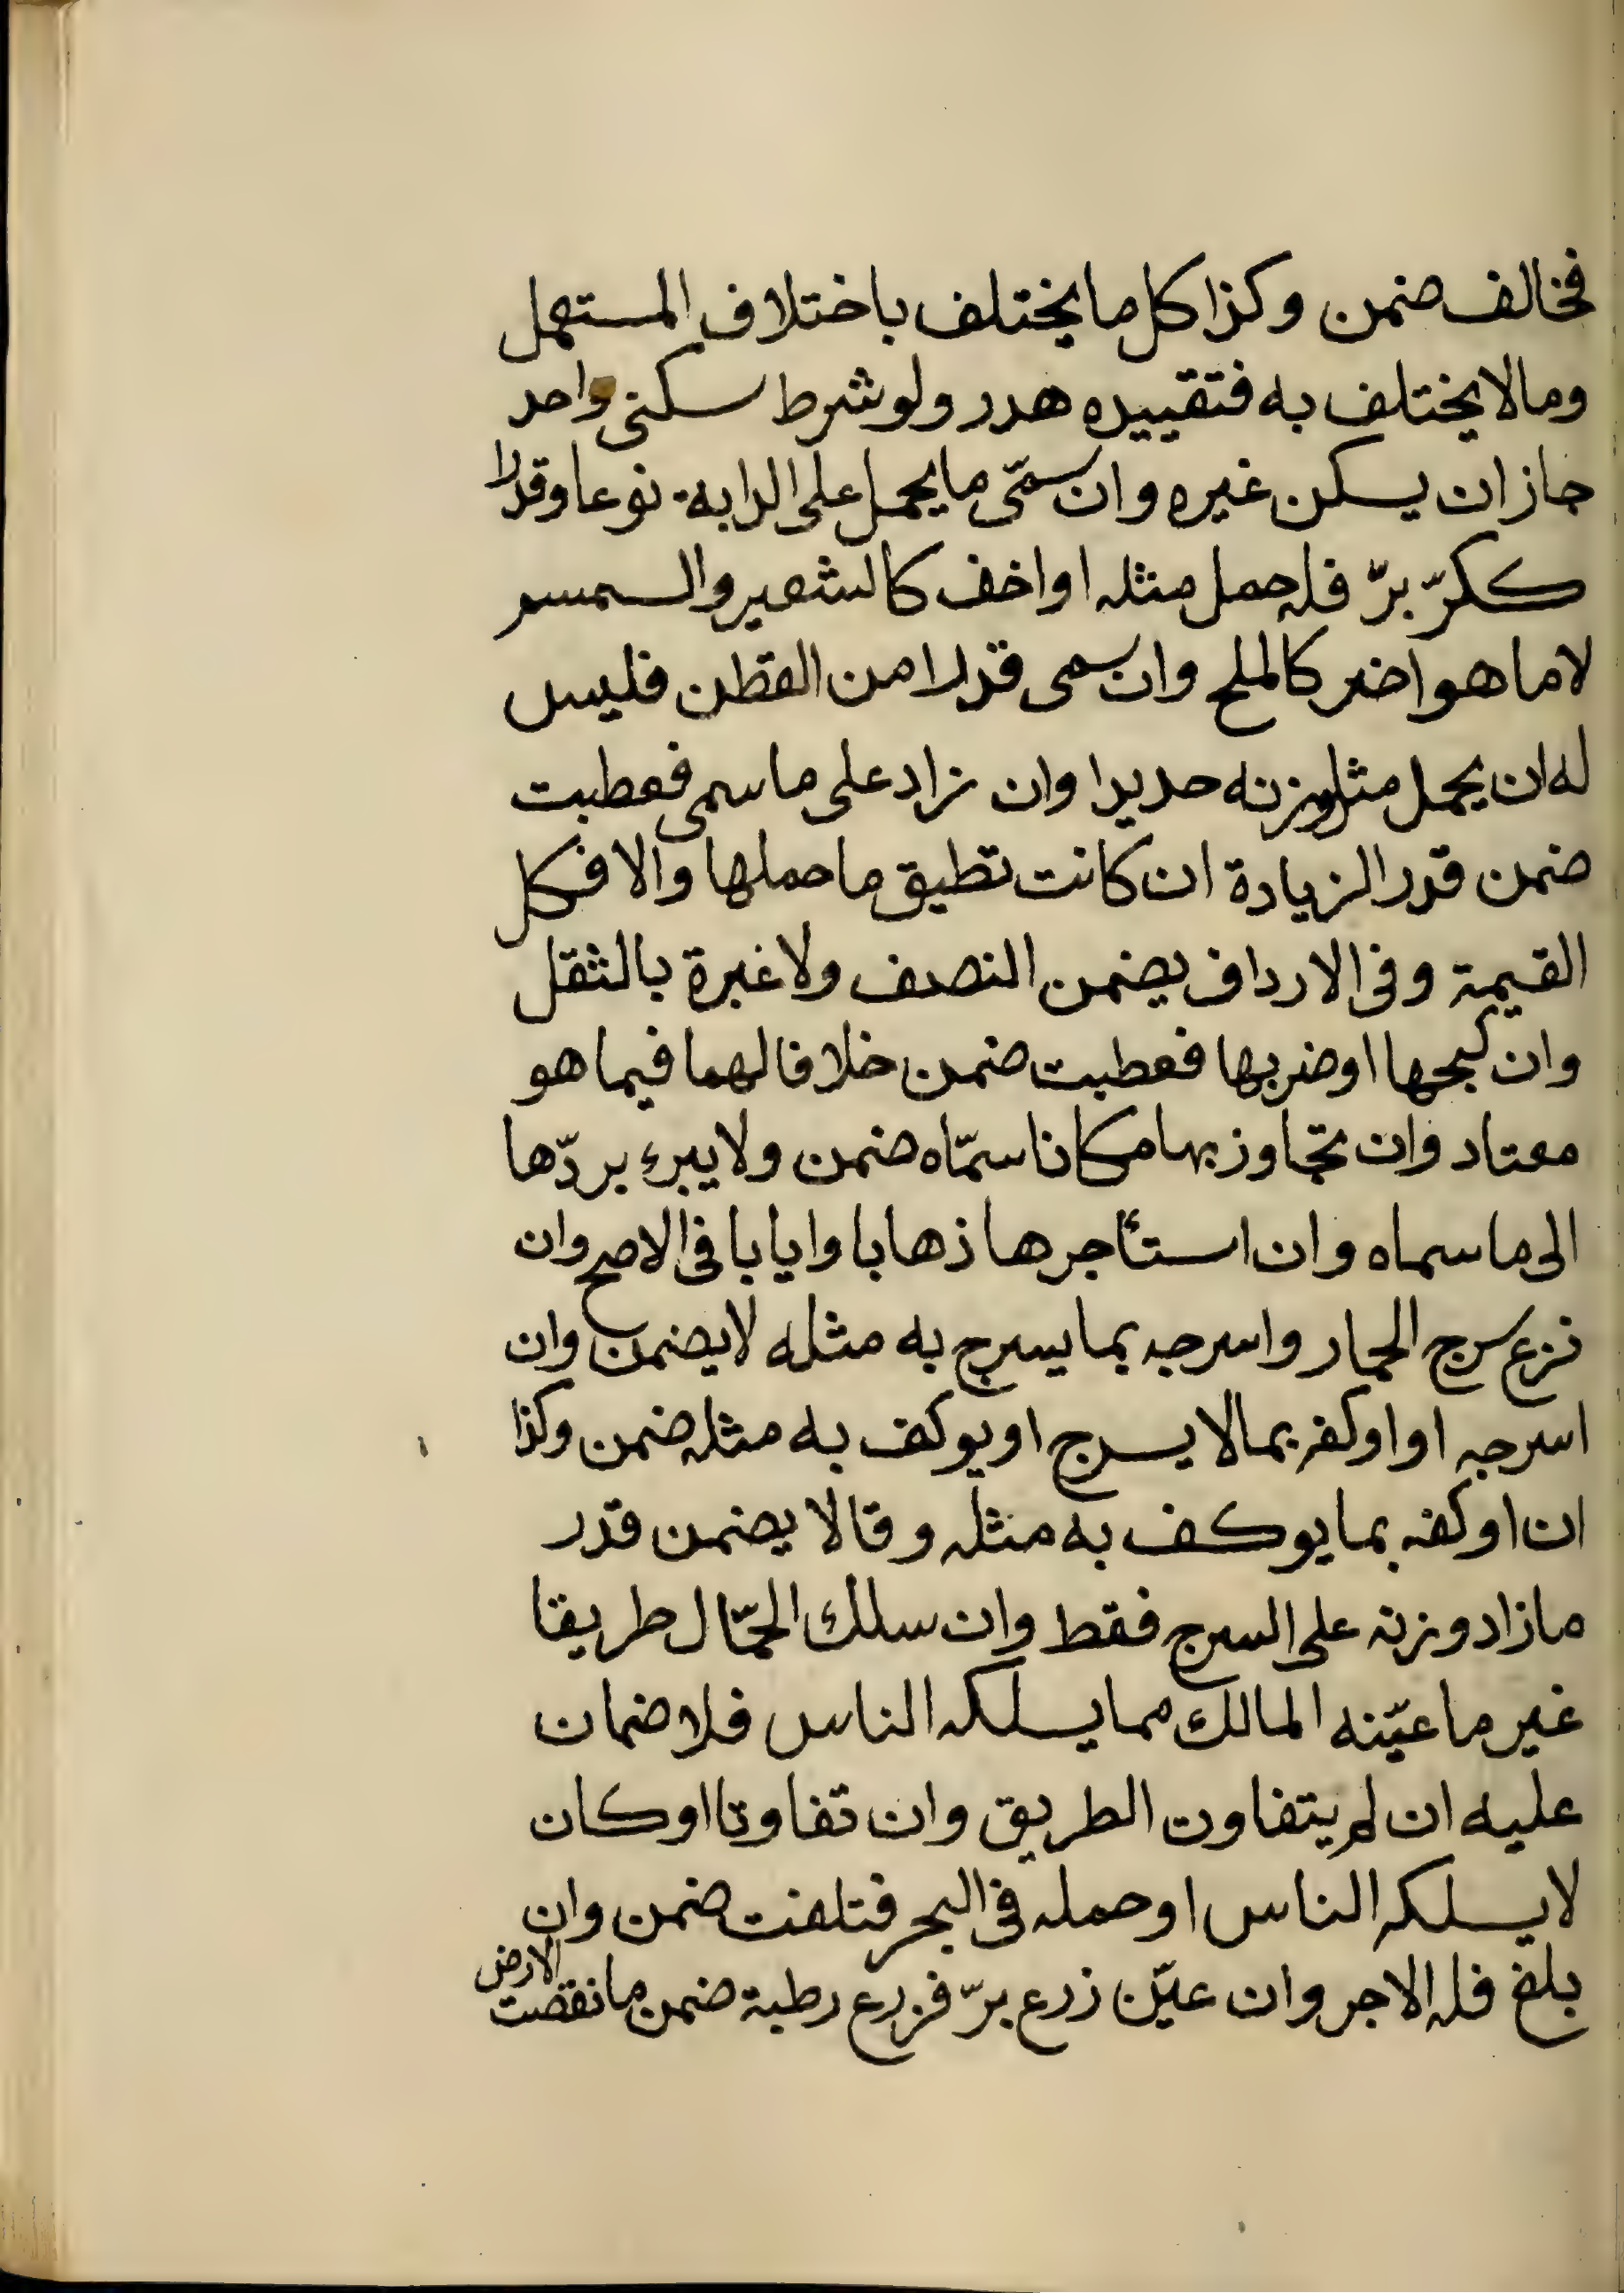 فخالف ضمن وكذا كل ما يختلف باختلاف المستعمل
ومالا يختلف به فتقييده هدر ولو شرط سكنى واحد
جاز ان يسكن غيره وان سمّى ما يحمل على الدابة نوعا وقدرا
ككرّ برّ فله حمل مثله او اخف كالشعير والسمسم
لا ما هو اضر كالملح وان سمى قدرا من القطن فليس
له ان يحمل مثل وزنه حديدا وان زاد على ما سمى فعطبت
ضمن قدر الزيادة ان كانت تطيق ما حملها والا فكل
القيمة وفى الارداف يضمن النصف ولا غبرة بالثقل
وان كبحها او ضربها فعطبت ضمن خلافا لهما فيما هو
معتاد وان تجاوز بها مكانا سمّاه ضمن ولا يبرء بردّها
الى ما سماه وان استأجرها ذهابا وايابا فى الاصح وان
نزع سرج الحمار واسرجه بما يسرج به مثله لا يضمن وان
اسرجه او اوكفه بمالا يسرج او يوكف به مثله ضمن وكذا
ان اوكفه بما يوكف به مثله وقالا يضمن قدر
مازاد وزنه على السرج فقط وان سلك الحمّال طريقا
غير ما عيّنه المالك مما يسلكه الناس فلا ضمان
عليه ان لم يتفاوت الطريق وان تفاوتا او كان
لا يسلكه الناس او حمله فى البحر فتلفت ضمن وان
بلغ فله الاجر وان عيّن زرع برّ فزرع رطبة ضمن ما نقصت الارض